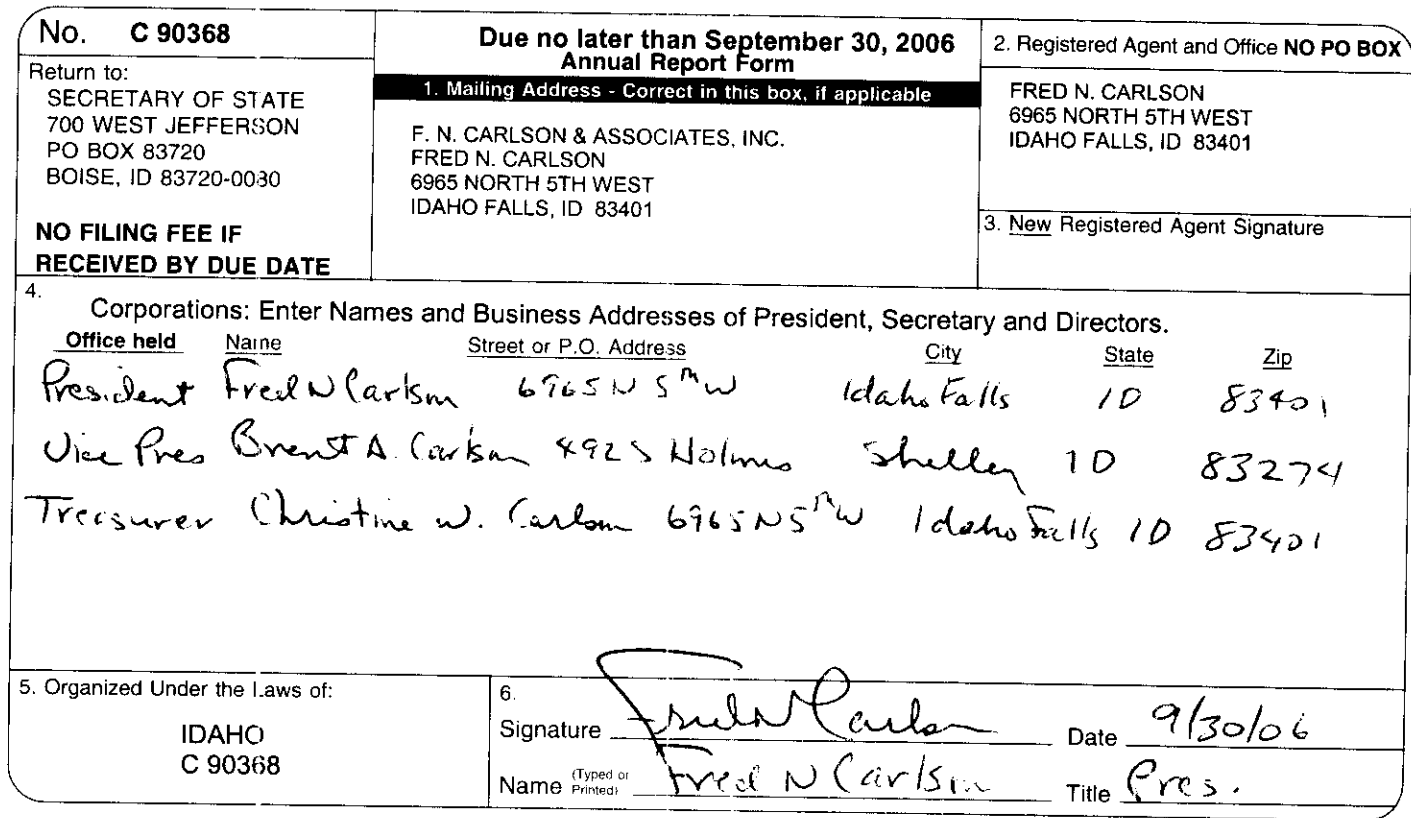 No. C 90368
Return to:
SECRETARY OF STATE
700 WEST JEFFERSON
PO BOX 83720
BOISE, ID 83720-0080
NO FILING FEE IF
RECEIVED BY DUE DATE
Due no later than September 30, 2006
Annual Report Form
1. Mailing Address - Correct in this box, if applicable
F. N. CARLSON & ASSOCIATES, INC.
FRED N. CARLSON
6965 NORTH 5TH WEST
IDAHO FALLS, ID 83401
2. Registered Agent and Office NO PO BOX
FRED N. CARLSON
6965 NORTH 5TH WEST
IDAHO FALLS, ID 83401
3. New Registered Agent Signature
4.
Corporations: Enter Names and Business Addresses of President, Secretary and Directors.
Office held Name Street or P.O. Address City State Zip
President Fred N Carlson 6965 N 5th W Idaho Falls ID 83401
Vice Pres Brent A. Carlson 492 S Holmes Shelley ID 83274
Treasurer Christine W. Carlson 6965 N 5th W Idaho Falls ID 83401
5. Organized Under the Laws of:
IDAHO
C 90368
6.
Signature Fred N Carlson Date 9/30/06
Name (Typed or Printed) Fred N Carlson Title Pres.